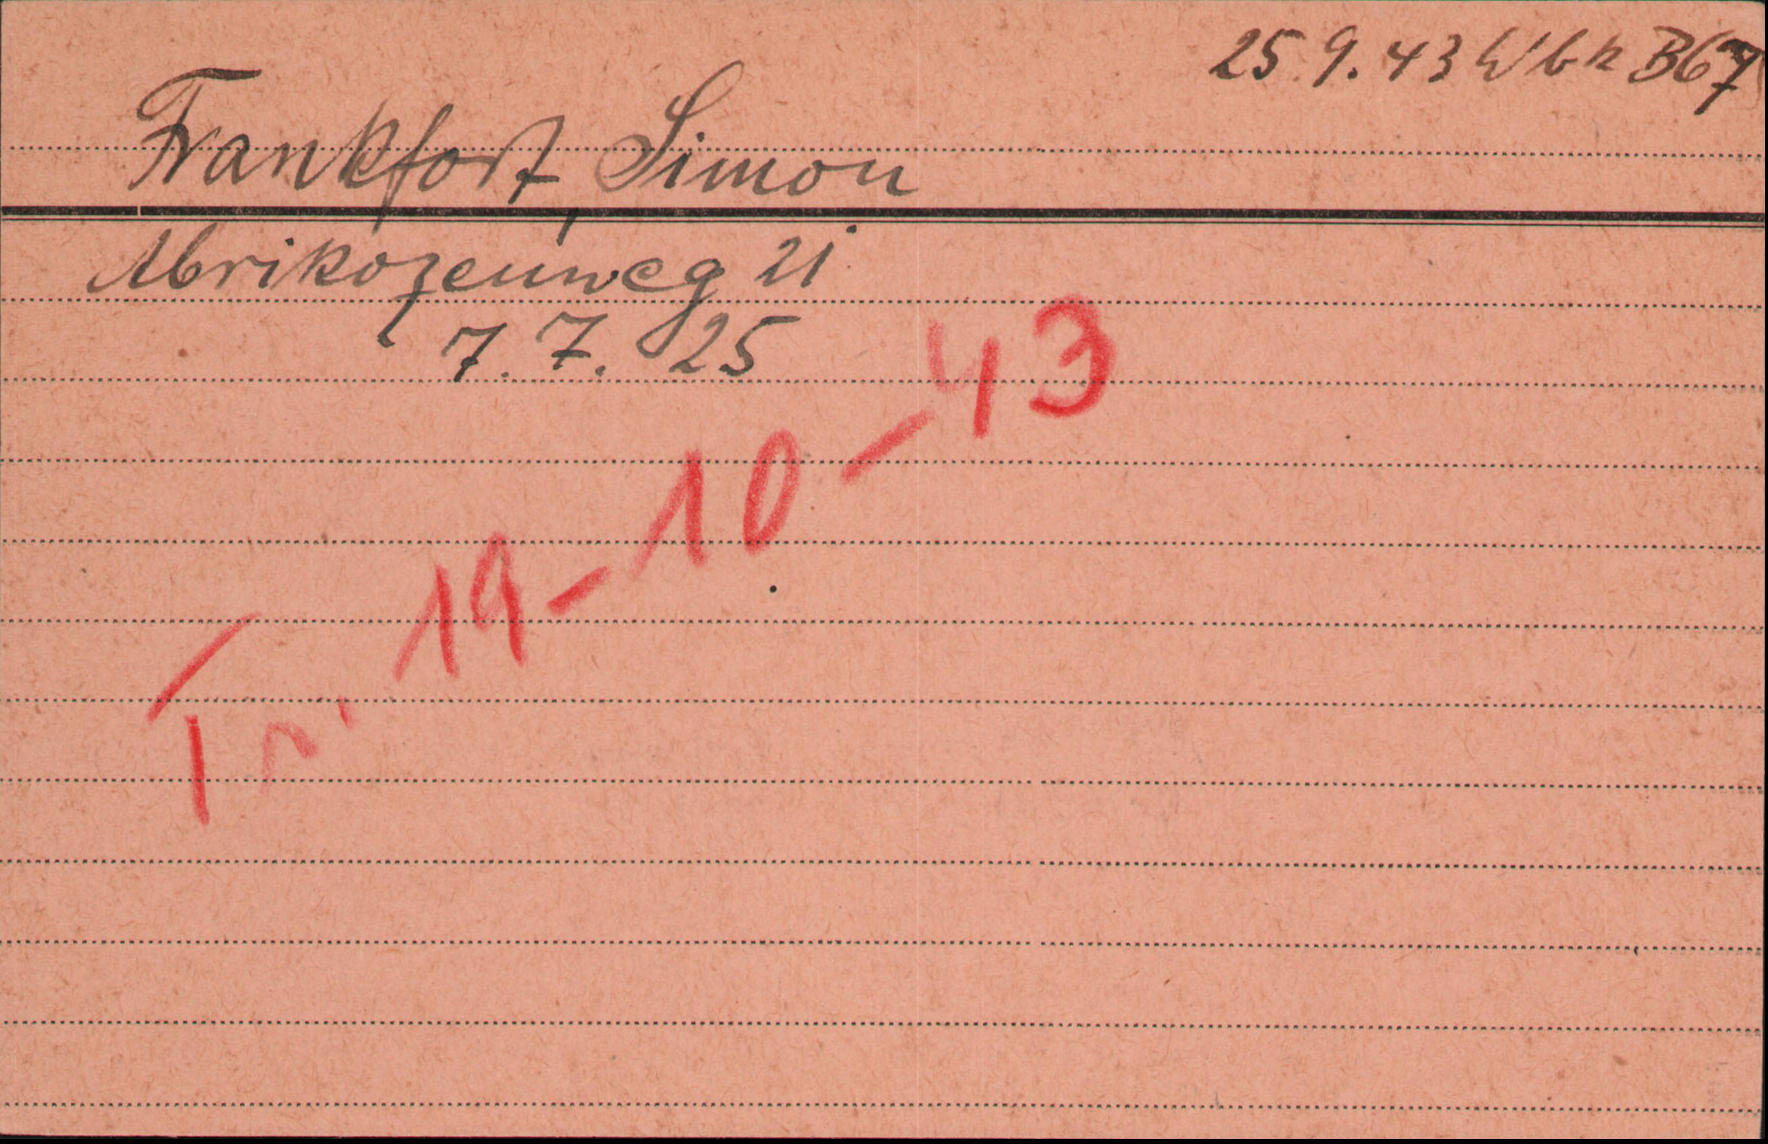 25.9.43 Wbk B67
Frankfort, Simon
Abrikozenweg 21
7. 7. 25
Tr. 19-10-43